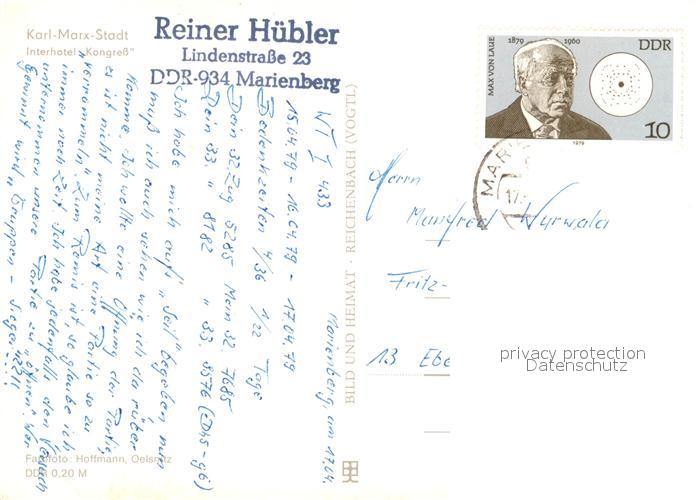 Karl-Marx-Stadt
Interhotel „Kongreß"
Reiner Hübler
Lindenstraße 23
DDR-934 Marienberg
MAX VON LAUE
1879 1960
DDR
10
1979
MARI
17.
WT I 433
Marienberg, am 17.04.
15.04.79 - 16.04.79 - 17.04.79
Bedenkzeiten 4/36 1/22 Tage
Dein 32. Zug 5285 Mein 32. 7685
Dein 33. " 8182 " 33. 8576 (Dh5-g6)
Ich habe mich aufs „Seil" begeben nun
muß ich auch sehen wie ich da rüber
komme. Ich wollte eine Öffnung der Partie,
es ist nicht meine Art eine Partie so zu
„verrammeln". Zum Remis ist, so glaube ich
immer noch Zeit. Ich habe jedenfalls den Versuch
unternommen unsere Partie zu „öffnen". Wer
gewinnt wird „Gruppen - Sieger" ...!
BILD UND HEIMAT · REICHENBACH (VOGTL)
Herrn
Manfred Wurwala
Fritz-
13 Ebe
privacy protection
Datenschutz
Farbfoto: Hoffmann, Oelsnitz
DDR 0,20 M